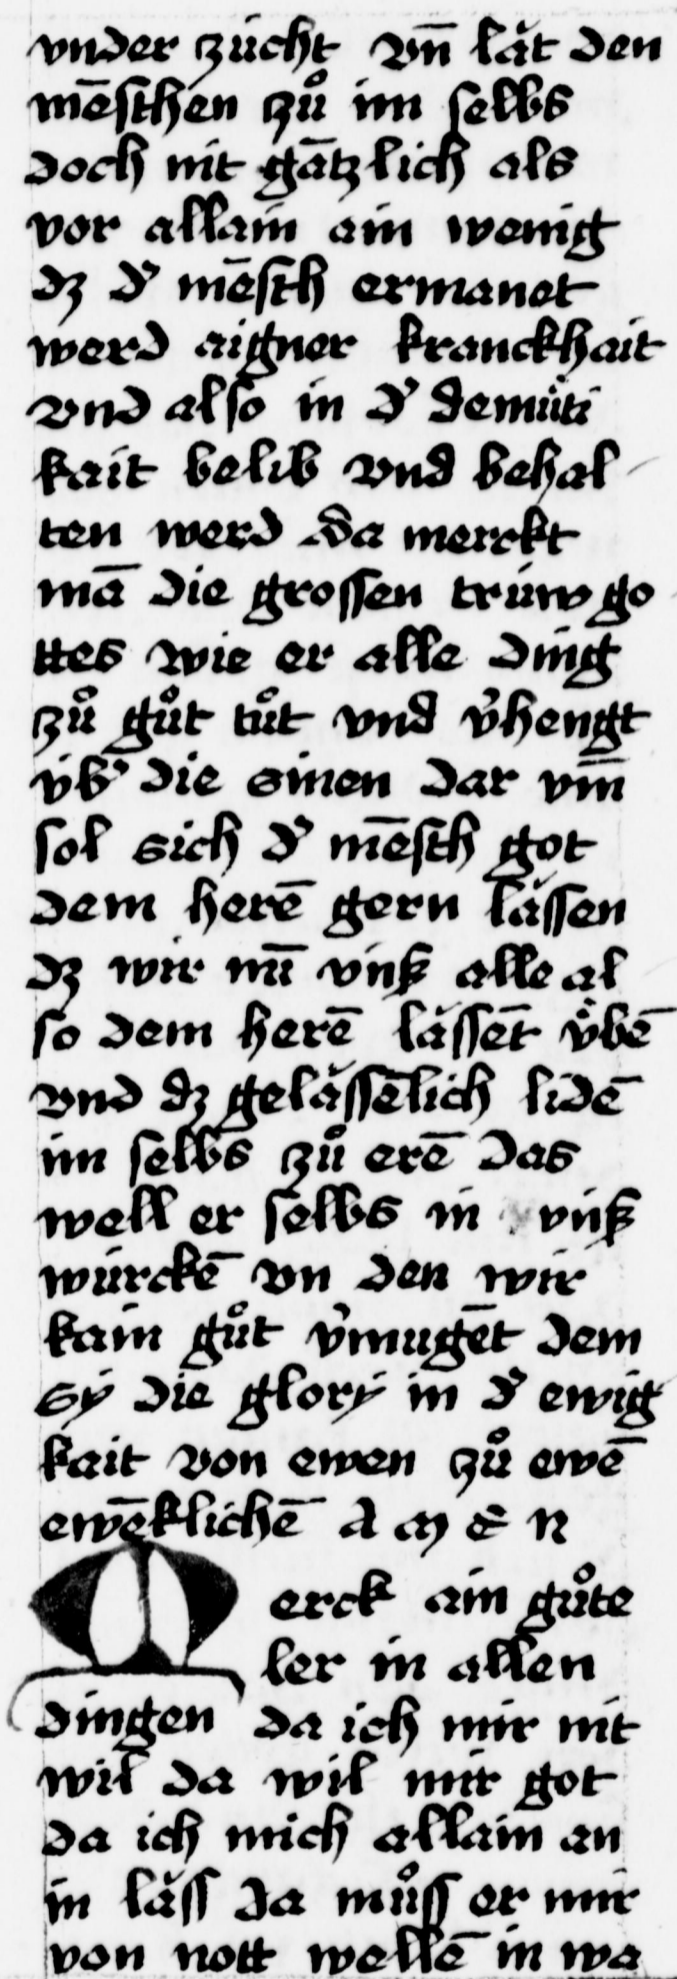 vnder zúcht vn̄ lǎt den
mēschen zů im selbs
doch nit gātzlich als
vor allain ain wenig
dz d' mēsch ermanet
werd aigner kranckhait
vnd also in d' demůti
kait belib vnd behal
ten werd da merckt
mā die grossen trúw go
ttes wie er alle ding
zů gůt tůt vnd v'hengt
v́b' die sinen dar vm̄
sol sich d' mēsch got
dem herē gern lǎssen
dz wir nū vńß alle al
so dem herē lǎssēt v̊bē
vnd dz gelǎssēlich lidē
im selbs zů erē das
well er selbs in vńß
wúrckē vn den wir
kain gůt v'mugēt dem
sy die glory in d' ewig
kait von ewen zů ewē
ewēklichē AMEN
Merck ain gůte
ler in allen
dingen da ich mir nit
wil da wil mir got
da ich mich allain an
in lǎss da můss er mir
von nott wellē in wa